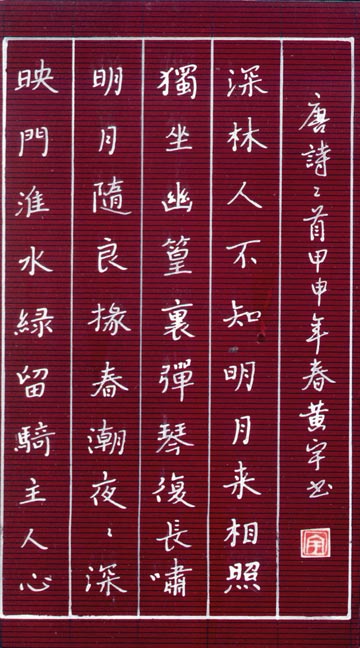 映門淮水緑留騎主人心
明月隨良掾春潮夜〻深
獨坐幽篁裏彈琴復長嘯
深林人不知明月来相照
唐詩二首甲申年春黄宇书
宇